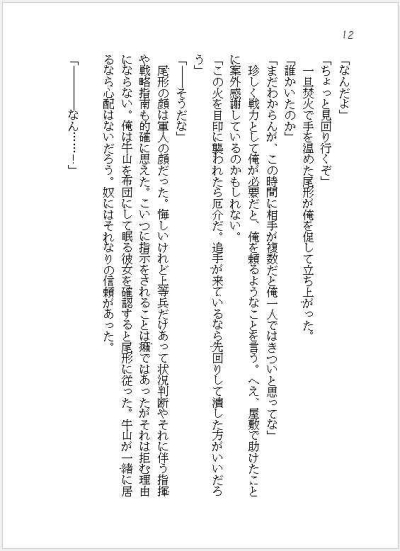 12
「なんだよ」
「ちょっと見回り行くぞ」
一旦焚火で手を温めた尾形が俺を促して立ち上がった。
「誰かいたのか」
「まだわからんが、この時間に相手が複数だと俺一人ではきついと思ってな」
珍しく戦力として俺が必要だと、俺を頼るようなことを言う。へえ、屋敷で助けたこと
に案外感謝しているのかもしれない。
「この火を目印に襲われたら厄介だ。追手が来ているなら先回りして潰した方がいいだろ
う」
「――そうだな」
尾形の顔は軍人の顔だった。悔しいけれど上等兵だけあって状況判断やそれに伴う指揮
や戦略指南も的確に思えた。こいつに指示をされることは癪ではあったがそれは拒む理由
にならない。俺は牛山を布団にして眠る彼女を確認すると尾形に従った。牛山が一緒に居
るなら心配はないだろう。奴にはそれなりの信頼があった。
「―――なん……！」